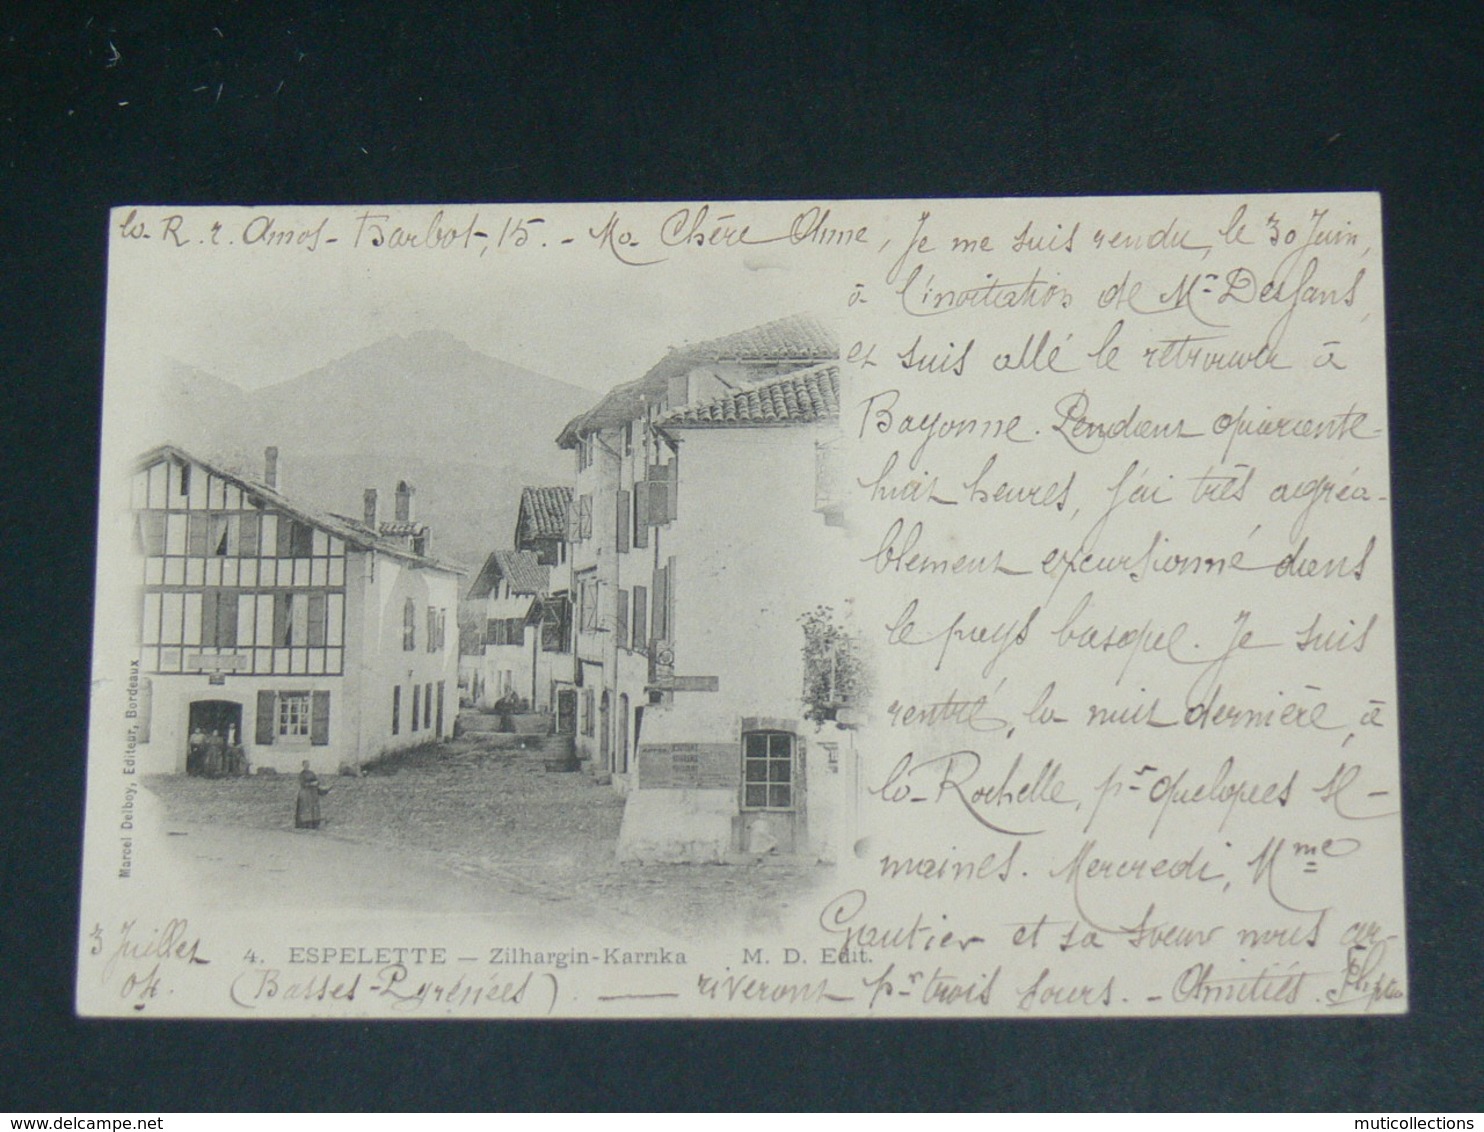 la R. r. Amos-Barbot, 15. - Ma Chère Anne, Je me suis rendu, le 30 Juin,
à l'invitation de Mr Desfans,
et suis allé le retrouver à
Bayonne. Pendant quarante-
huit heures, j'ai très agréa-
blement excursionné dans
le pays basque. Je suis
rentré, la nuit dernière, à
la Rochelle, pr quelques se-
maines. Mercredi, Mme
Gautier et sa soeur nous ar-
riveront pr trois jours. - Amitiés.
3 Juillet
04.
4. ESPELETTE — Zilhargin-Karrika M. D. Edit.
(Basses-Pyrénées)
Marcel Delboy, Editeur, Bordeaux
www.delcampe.net
muticollections